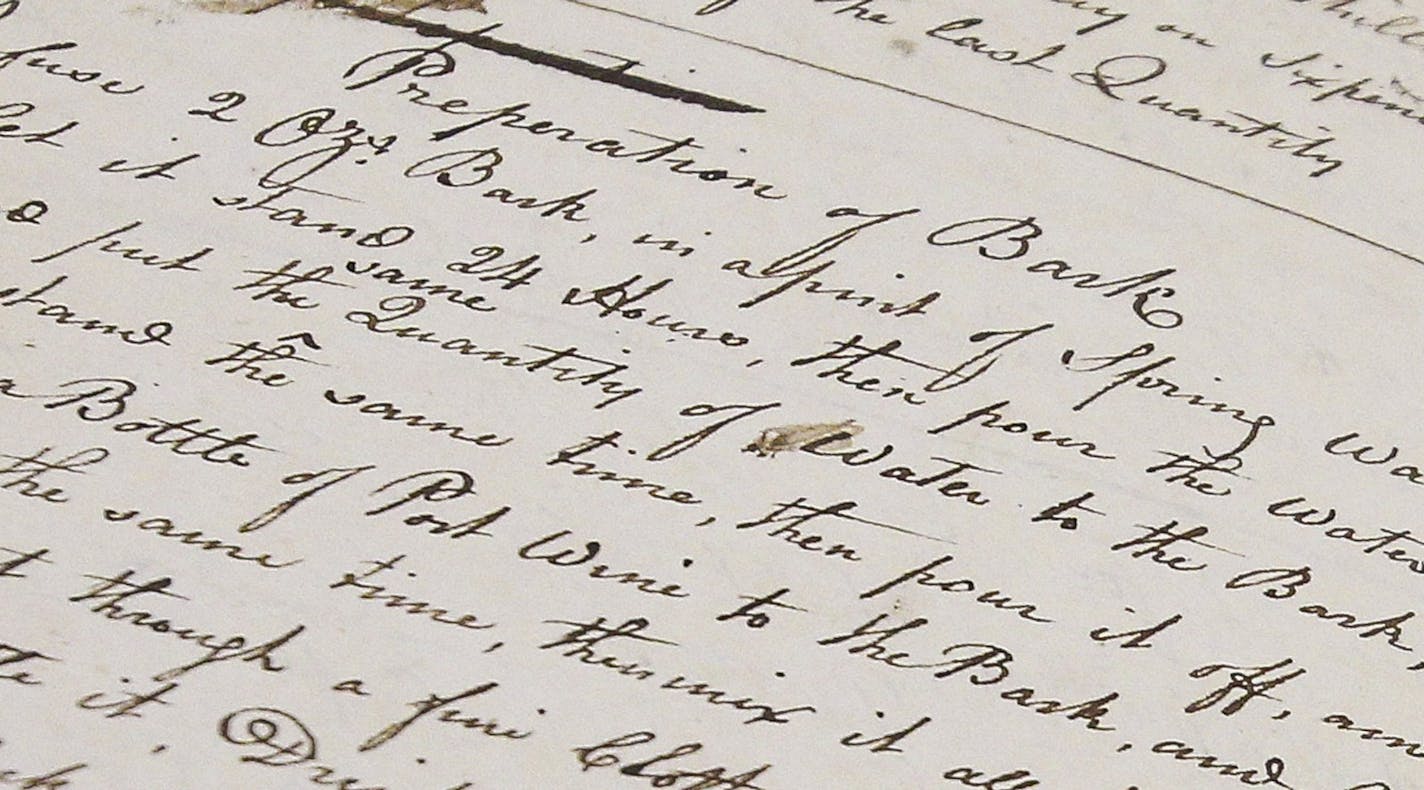 on Sixpen
the last Quantity
Preperation of Bark
fuse 2 Ozs. Bark, in a pint of Spring Wa
let it stand 24 Hours, then pour the Water
same
put the Quantity of Water to the Bark,
stand the same time, then pour it off, and
a Bottle of Port Wine to the Bark, and
the same time, then mix it all
t through a fine Cloth
it, Dri